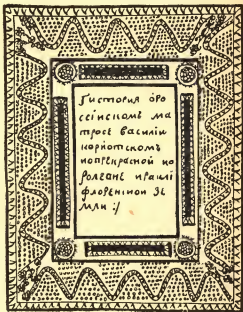 Гистория ѡро
ссiискомъ ма
тросе василии
кориотскомъ
ипопрекрасной ко
ролевне ираклiї
флоренской зе
мли :/